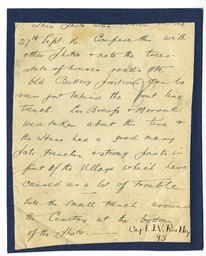 This Photo was taken the
27th Sept. the Compare this with
other Photos & note the trees
state of houses roads etc
Old Battery positions can be
seen just behind the front line
trench. Les Boeufs & Morval
were taken about this time &
the Huns had a good many
forts trenches & strong points in
front of the Village which have
caused us a lot of trouble.
Note the small trench around
the Cemetery at the bottom
of the photo.
Cap F.J.V.
43